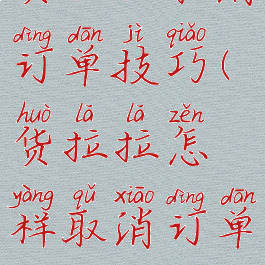 dìng dān jì qiǎo
订单技巧(
huò lā lā zěn
货拉拉怎
yàng qǔ xiāo dìng dān
样取消订单